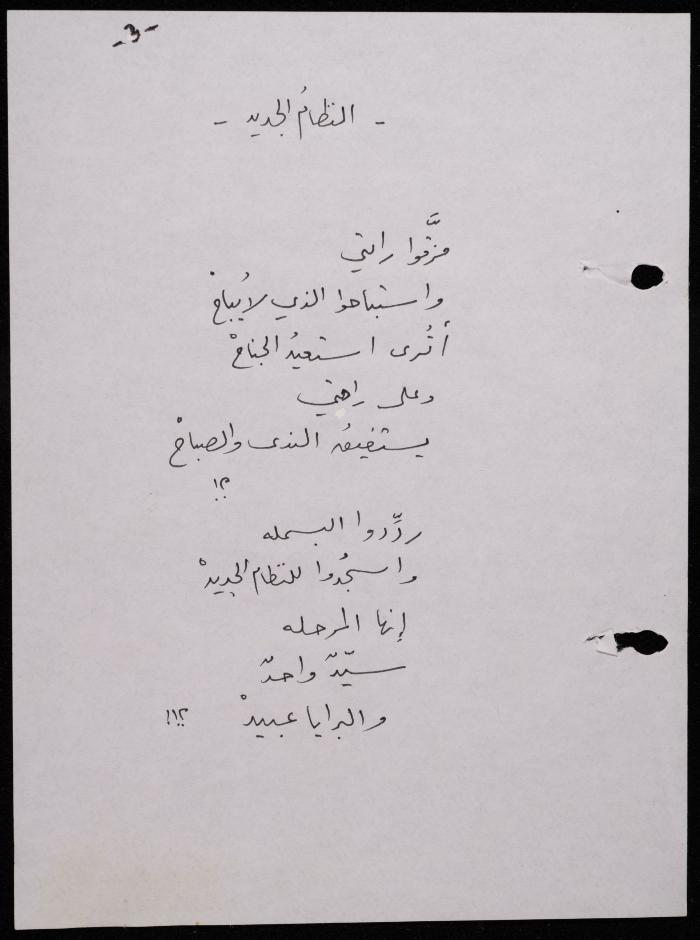 -3-
- النظامُ الجديد -
مزَّقوا رايتي
واستباحوا الذي لا يُباحْ
أتُرى استعيدُ الجناحْ
وعلى راحتي
يستفيقُ الندى والصباحْ
؟!
ردِّدوا البسمله
واسجُدوا للنظام الجديدْ
إنها المرحله
سيّدٌ واحدٌ
والبرايا عبيدْ ؟!!